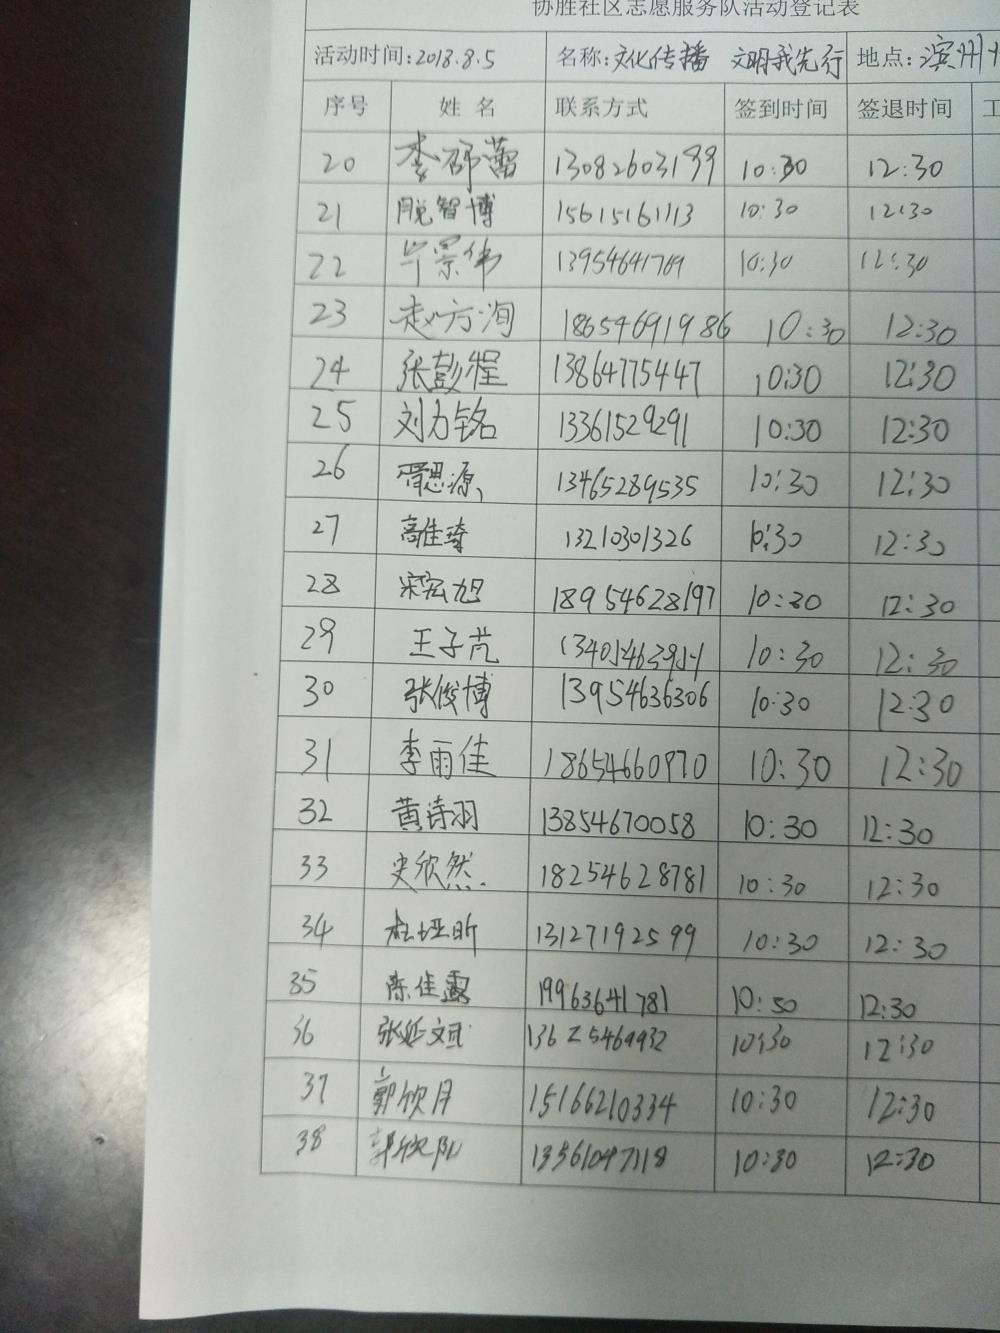 协胜社区志愿服务队活动登记表
活动时间:2018.8.5 名称:文化传播 文明我先行 地点:滨州
序号 姓名 联系方式 签到时间 签退时间 工
20 李 蕾 13082603199 10:30 12:30
21 脱智博 15615161113 10:30 12:30
22 毕景伟 13954641769 10:30 12:30
23 赵方洵 18654691986 10:30 12:30
24 张彭程 13864775447 10:30 12:30
25 刘力铭 13361529291 10:30 12:30
26 胥思源 13465289535 10:30 12:30
27 高佳琦 13210301326 10:30 12:30
28 宋宏旭 18954628197 10:30 12:30
29 王子芃 10:30 12:30
30 张俊博 13954636306 10:30 12:30
31 李雨佳 18654660970 10:30 12:30
32 黄诗羽 13854670058 10:30 12:30
33 史欣然 18254628781 10:30 12:30
34 杜垭昕 13127192599 10:30 12:30
35 陈佳露 19963641781 10:30 12:30
36 张延文 13625469932 10:30 12:30
37 郭欣月 15166210334 10:30 12:30
38 郭欣 13361047118 10:30 12:30